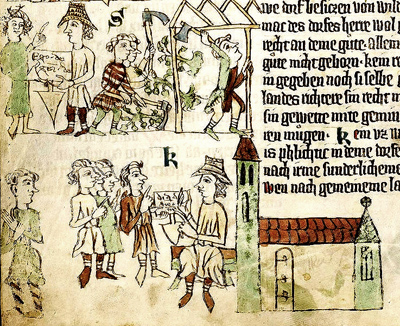 S
we dorf besizen von wild
mac des dorfes herre wol g
recht an deme gute. allein
gute nicht geborn. kein re
in gegeben noch si selbe g
landes richtere sin recht
sin gewette mite gemin
ren mugen. Kein vz w
is phlichtic in deme dorfe
k
nach irme sunderlicheme
wen nach gemeineme la